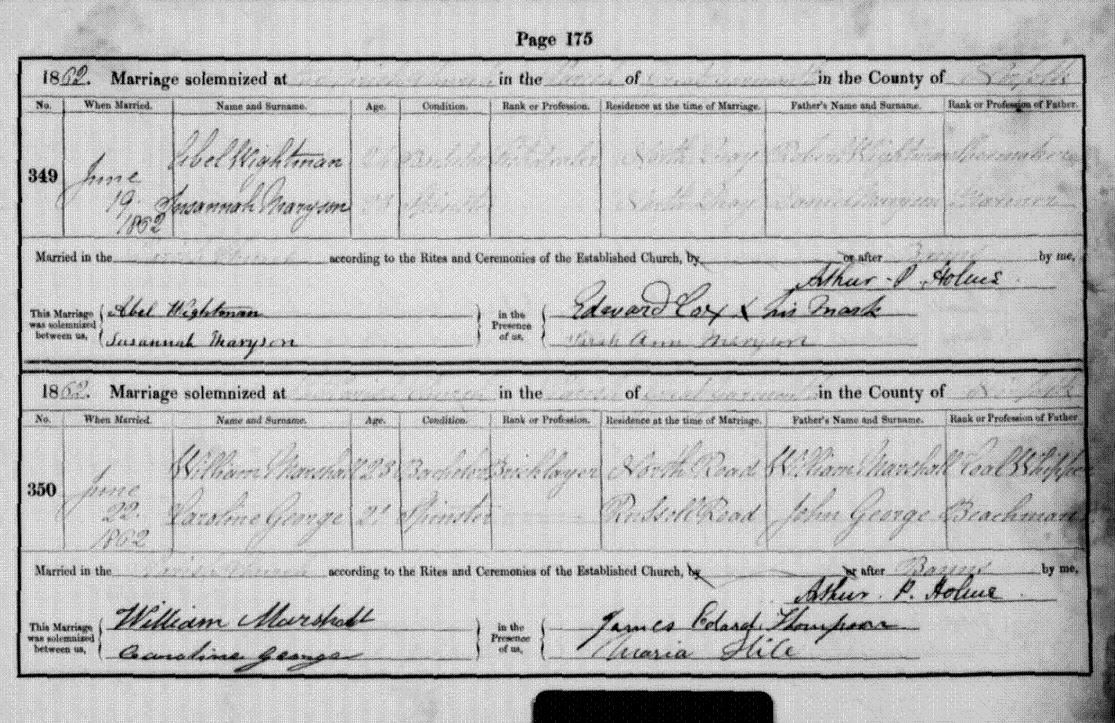 Page 175
1862. Marriage solemnized at in the Parish of Great Yarmouth in the County of Norfolk
No. When Married. Name and Surname. Age. Condition. Rank or Profession. Residence at the time of Marriage. Father's Name and Surname. Rank or Profession of Father.
349 June 19 1862
Abel Wightman Bachelor North Quay Robert Wightman Shoemaker
Susannah Maryson Spinster North Quay James Maryson Mariner
Married in the Parish Church according to the Rites and Ceremonies of the Established Church, by or after Banns by me,
Arthur P. Holme
This Marriage was solemnized between us, Abel Wightman Susannah Maryson
in the Presence of us, Edward Cox X his mark Sarah Ann Maryson
1862. Marriage solemnized at the Parish Church in the Parish of Great Yarmouth in the County of Norfolk
No. When Married. Name and Surname. Age. Condition. Rank or Profession. Residence at the time of Marriage. Father's Name and Surname. Rank or Profession of Father
350 June 22. 1862
William Marshall 23 Bachelor Bricklayer North Road William Marshall Coal Whipper
Caroline George 21 Spinster Russell Road John George Beachman
Married in the Parish Church according to the Rites and Ceremonies of the Established Church, by or after Banns by me,
Arthur P. Holme
This Marriage was solemnized between us, William Marshall Caroline George
in the Presence of us, James Edard Thompson Maria Hile